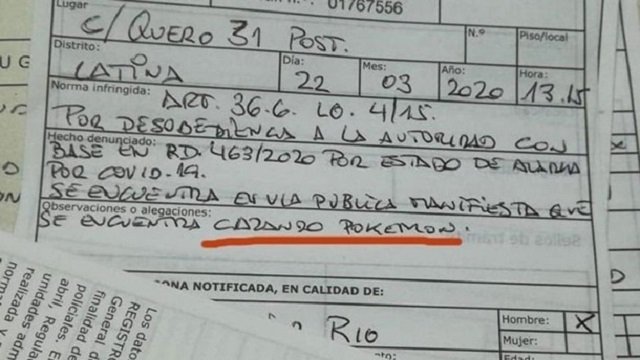 Lugar
01767556
C/ QUERO 31 POST.
Nº
Piso/local
Distrito:
LATINA
Día:
22
Mes:
03
Año:
2020
Hora:
13.15
Norma infringida:
ART. 36-6. LO. 4/15.
POR DESOBEDIENCA A LA AUTORIDAD CON
Hecho denunciado:
BASE EN RD. 463/2020 POR ESTADO DE ALARMA
POR COVID-19.
SE ENCUENTRA EN VIA PUBLICA MANIFIESTA QUE
Observaciones o alegaciones:
SE ENCUENTRA CAZANDO POKEMON.
Sellos de
ONA NOTIFICADA, EN CALIDAD DE:
RIO
Hombre:
X
Mujer:
Edad:
Los dato
REGISTRO
General d
finalidad de
policiales. E
abril, Regula
unidades adm
realizada
norma